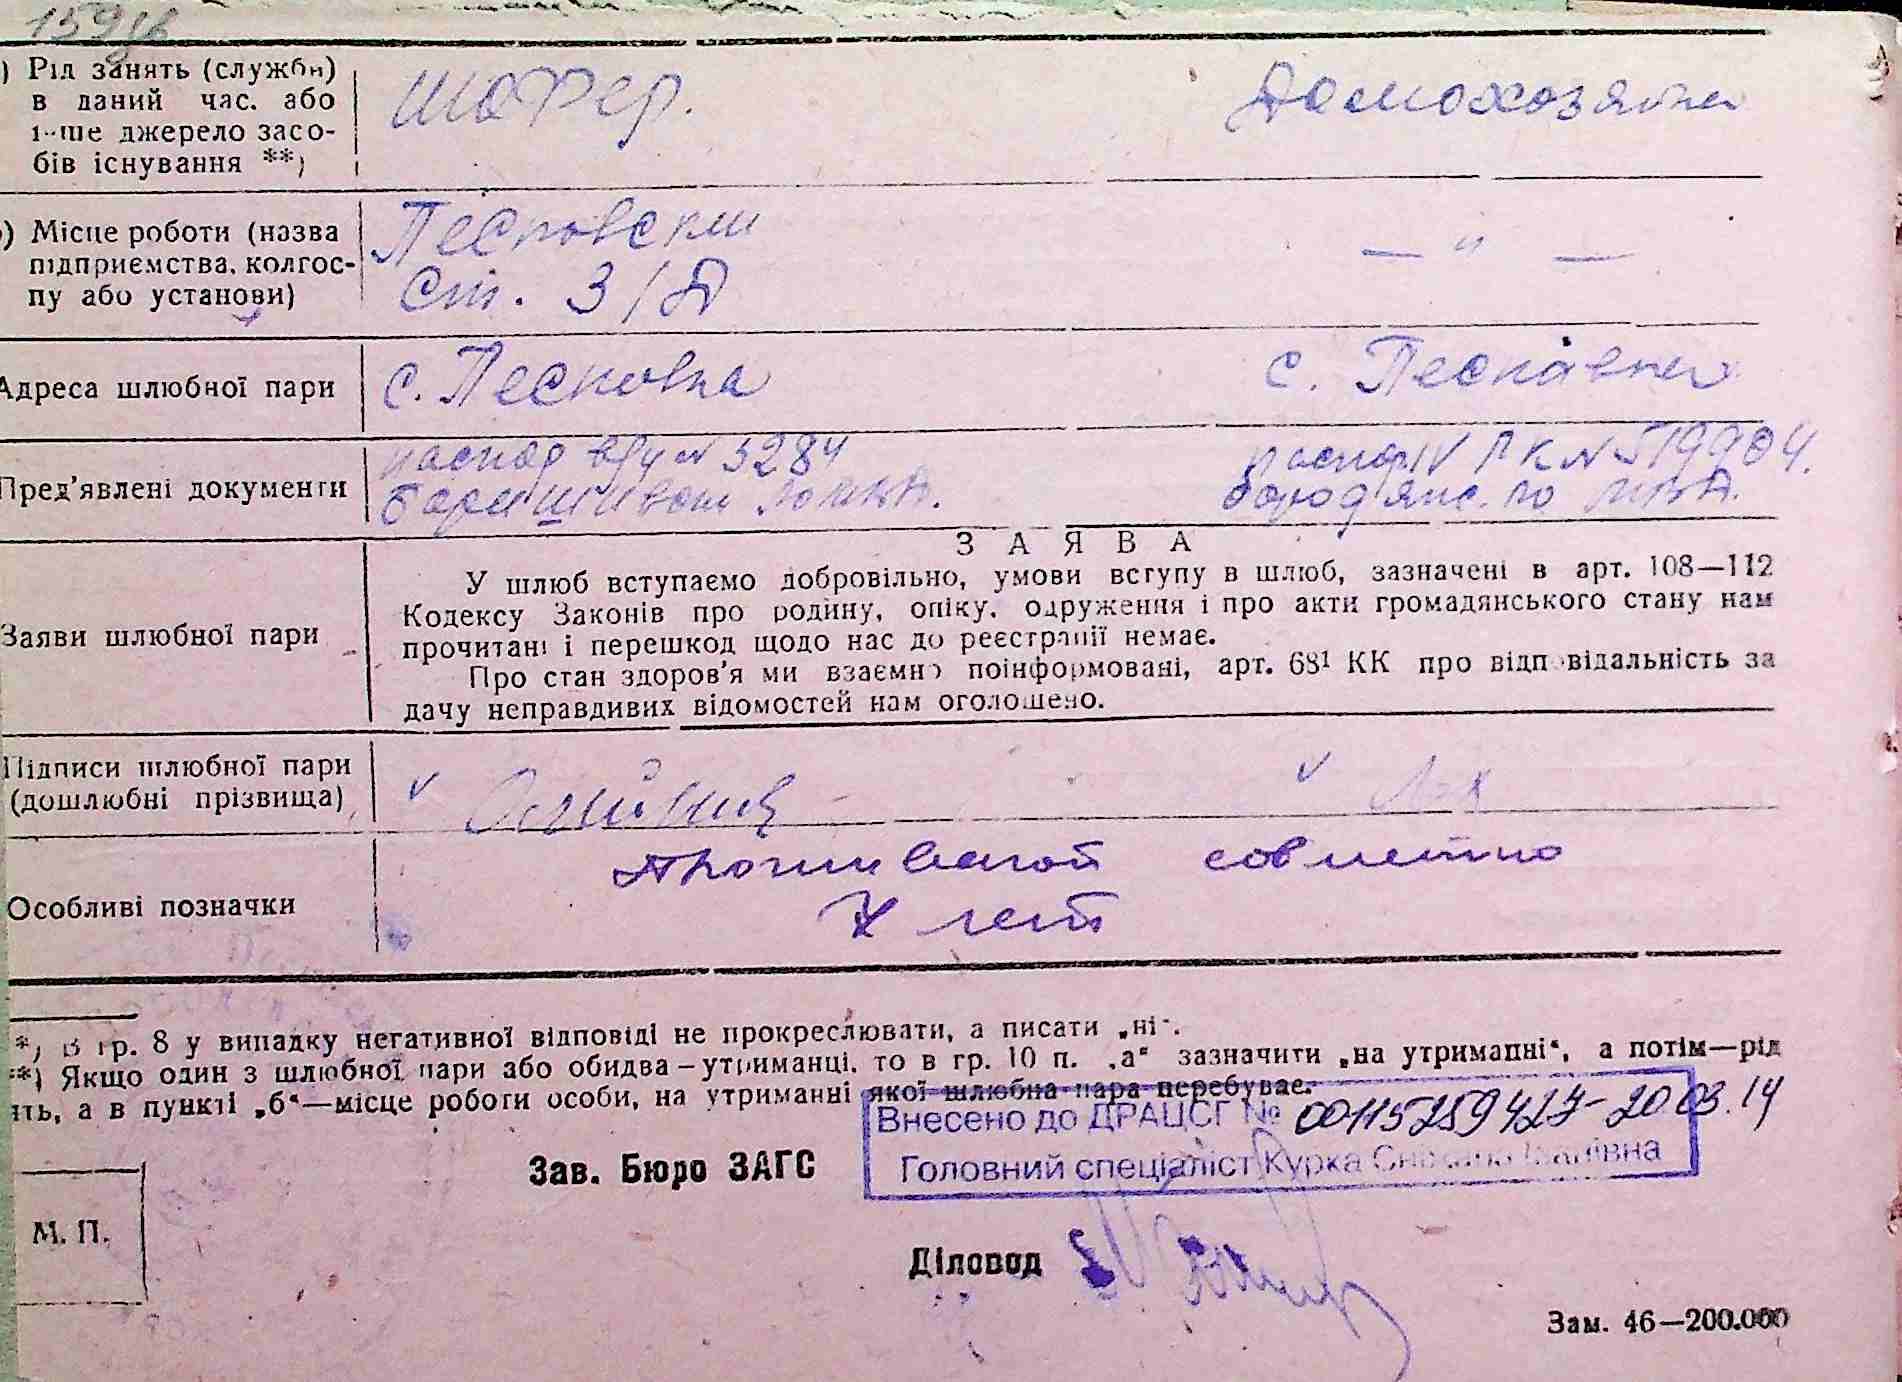 159
) Рід занять (служби) в даний час. або інше джерело засобів існування **)
шофер.
домохозяйка
) Місце роботи (назва підприємства, колгоспу або установи)
Песковский
ст. З/Д
— " —
Адреса шлюбної пари
с. Песковка
с. Песковка
Пред'явлені документи
паспорт № 3284
паспорт IV ПК № 519904.
З А Я В А
Заяви шлюбної пари
У шлюб вступаємо добровільно, умови вступу в шлюб, зазначені в арт. 108—112
Кодексу Законів про родину, опіку, одруження і про акти громадянського стану нам
прочитані і перешкод щодо нас до реєстрації немає.
Про стан здоров'я ми взаємно поінформовані, арт. 68¹ КК про відповідальність за
дачу неправдивих відомостей нам оголошено.
Підписи шлюбної пари
(дошлюбні прізвища)
Особливі позначки
проживают совместно
7 лет
*) В гр. 8 у випадку негативної відповіді не прокреслювати, а писати „ні".
**) Якщо один з шлюбної пари або обидва—утриманці, то в гр. 10 п. „а" зазначити „на утриманні", а потім—рід
ть, а в пункті „б"—місце роботи особи, на утриманні якої шлюбна пара перебуває.
Внесено до ДРАЦСГ № 00115259427-20.03.14
Головний спеціаліст Курка Сніжана Іванівна
Зав. Бюро ЗАГС
М. П.
Діловод
Зам. 46—200.000